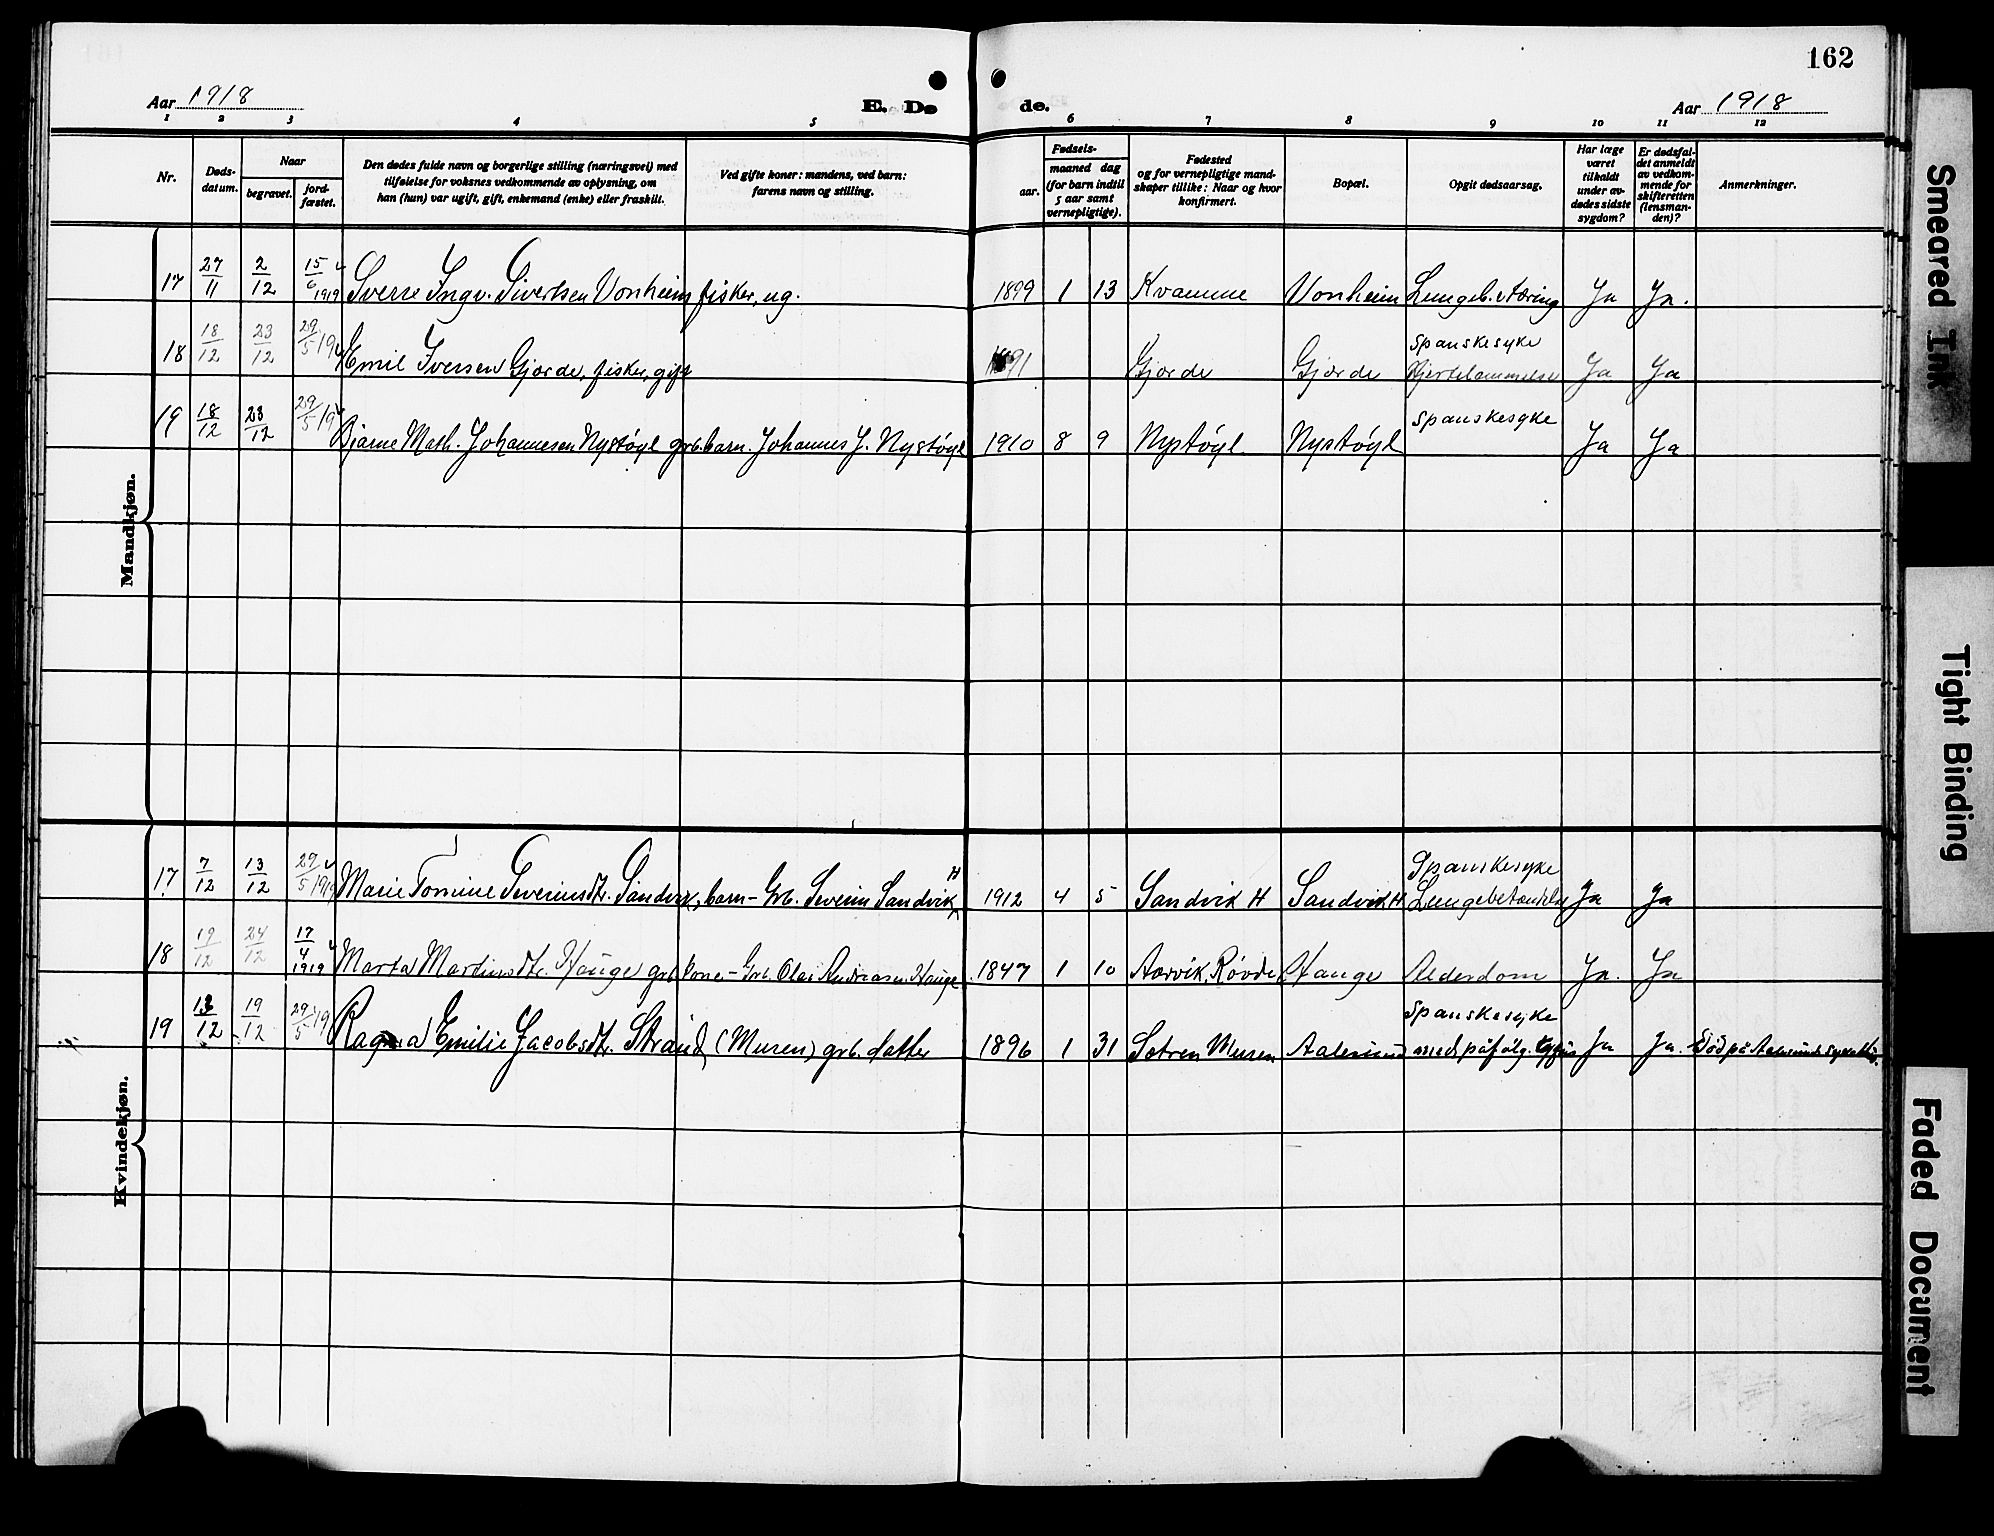 162
Aar 1918
E. Dø de.
Aar 1918
1 2 3 4 5 6 7 8 9 10 11 12
Nr.
Døds-
datum.
Naar
begravet.
jord-
fæstet.
Den dødes fulde navn og borgerlige stilling (næringsvei) med
tilføielse for voksnes vedkommende av oplysning, om
han (hun) var ugift, gift, enkemand (enke) eller fraskilt.
Ved gifte koner: mandens, ved barn:
farens navn og stilling.
Fødsels-
aar.
maaned dag
(for barn indtil
5 aar samt
vernepligtige).
Fødested
og for vernepligtige mand-
skaper tillike: Naar og hvor
konfirmert.
Bopæl.
Opgit dødsaarsag.
Har læge
været
tilkaldt
under av-
dødes sidste
sygdom?
Er dødsfal-
det anmeldt
av vedkom-
mende for
skifteretten
(lensman-
den)?
Anmerkninger.
Mandkjøn.
17 27/11 2/12 15/6 1919 Sverre Ingv. Sivertsen Vonheim fisker, ug. 1899 1 13 Kvamme Vonheim Lungeb. tæring Ja Ja.
18 18/12 23/12 29/5 19 Emil Iversen Gjørde, fisker, gift 1891 Gjørde Gjørde Spanskesyke
Hjertelammelse Ja Ja
19 18/12 23/12 29/5 19 Bjarne Math. Johannesen Nystøyl grb. barn. Johannes J. Nystøyl 1910 8 9 Nystøyl Nystøyl Spanskesyke Ja Ja
Kvindekjøn.
17 7/12 13/12 29/5 1919 Marie Tomine Severinsdtr. Sandvik, barn - Grb. Severin Sandvik H 1912 4 5 Sandvik H Sandvik H Spanskesyke
Lungebetændelse Ja Ja
18 19/12 24/12 17/4 1919 Marta Martinsdtr. Hauge grb. kone - Grb. Olai Andreasen Hauge 1847 1 10 Aarvik, Røvde Hauge Alderdom Ja. Ja
19 13/12 19/12 29/5 19 Ragna Emilie Jacobsdtr. Strand (Muren) grb. datter 1896 1 31 Sætren Muren Aalesund Spanskesyke
med påfølg. tyfus Ja Ja. Død på Aalesunds sykehus.
Smeared Ink
Tight Binding
Faded Document